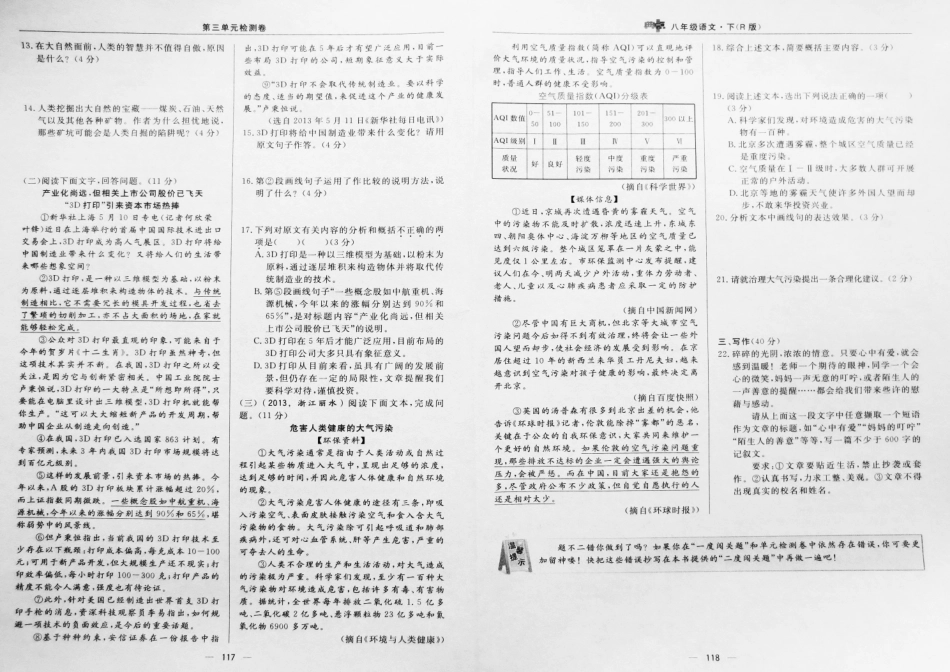 第三单元检测卷
13.在大自然面前,人类的智慧并不值得自傲,原因
是什么?(4分)
14.人类挖掘出大自然的宝藏——煤炭、石油、天然
气以及其他各种矿物。作者为什么担忧地说,
那些矿坑可能会是人类自掘的陷阱呢?(4分)
(二)阅读下面文字,回答问题。(11分)
产业化尚远,但相关上市公司股价已飞天
“3D打印”引来资本市场热捧
①新华社上海5月10日专电(记者何欣荣
叶锋)近日在上海举行的首届中国国际技术进出口
交易会上,3D打印成为高人气展区。3D打印将给
中国制造业带来什么变化?又将给人们的生活带
来哪些想象空间?
②3D打印,是一种以三维模型为基础,以粉末
为原料,通过逐层堆积来构造物体的技术。与传统
制造相比,它不需要冗长的模具开发过程,也省去
了繁琐的切削加工,亦不占大面积的场地,在家就
能够轻松完成。
③公众对3D打印最直观的印象,可能来自于
今年的贺岁片《十二生肖》。3D打印虽然神奇,但
这项技术其实并不新。在我国,3D打印之所以受
关注,是因为它与创新紧密相关。中国工业院院士
卢秉恒说,3D打印的一大特点是“所想即所得”,只
要能在电脑里设计出三维模型,3D打印机就能帮
你生产。“这可以大大缩短新产品的开发周期,帮
助中国企业从制造走向创造。”
④在我国,3D打印已入选国家863计划。有
专家预测,未来3年内我国3D打印市场规模将达
到百亿元级别。
⑤这样的发展前景,引来资本市场的热捧。今
年以来,A股的3D打印板块累计涨幅超过20%,
而上证指数同期微跌。一些概念股如中航重机、海
源机械,今年以来的涨幅分别达到90%和65%,堪
称弱势中的风景线。
⑥但卢秉恒指出,当前我国的3D打印技术至
少存在以下瓶颈:打印成本偏高,每克成本10-100
元;可用于新产品开发,但大规模生产还不现实;打
印效率偏低,每小时打印100-300克;打印产品的
精度不能令人满意,强度也有待论证。
⑦此外,针对美国已经制造出世界首支3D打
印手枪的消息,资深科技观察员李易指出,如何规
避一项技术的负面效应,是今后的重要话题。
⑧基于种种约束,安信证券在一份报告中指
出,3D打印可能在5年后才有望广泛应用,目前一
些布局3D打印的公司,短期象征意义大于实际
效益。
⑨“3D打印不会取代传统制造业。要以科学
的态度、适当的期望值,来促进这个产业的健康发
展。”卢秉恒说。
(选自2013年5月11日《新华社每日电讯》)
15.3D打印将给中国制造业带来什么变化?请用
原文句子作答。(4分)
16.第②段画线句子运用了作比较的说明方法,说
明了什么?(4分)
17.下列对原文有关内容的分析和概括不正确的两
项是( )( )(3分)
A.3D打印是一种以三维模型为基础,以粉末为
原料,通过逐层堆积来构造物体并将取代传
统制造业的技术。
B.第⑤段画线句子“一些概念股如中航重机、海
源机械,今年以来的涨幅分别达到90%和
65%”,是对标题内容“产业化尚远,但相关
上市公司股价已飞天”的说明。
C.3D打印在5年后才能广泛应用,目前布局的
3D打印公司大多只具有象征意义。
D.3D打印从目前来看,虽具有广阔的发展前
景,但仍存在一定的局限性,文章提醒我们
要科学对待,谨慎投资。
(三)(2013,浙江丽水)阅读下面文本,完成问
题。(11分)
危害人类健康的大气污染
【环保资料】
①大气污染通常是指由于人类活动或自然过
程引起某些物质进入大气中,呈现出足够的浓度,
达到足够的时间,并因此危害人体健康和自然环境
的现象。
②大气污染危害人体健康的途径有三条,即吸
入污染空气、表面皮肤接触污染空气和食入含大气
污染物的食物。大气污染除可引起呼吸道和肺部
疾病外,还可对心血管系统、肝等产生危害,严重的
可夺去人的生命。
③人类不合理的生产和生活活动,对大气造成
的污染极为严重。科学家们发现,至少有一百种大
气污染物对环境造成危害,包括许多有毒、有害物
质。据统计,全世界每年排放二氧化硫1.5亿多
吨、二氧化碳2亿多吨、悬浮颗粒物23亿多吨和氮
氧化物6900多万吨。
(摘自《环境与人类健康》)
— 117 —
八年级语文·下(R版)
利用空气质量指数(简称AQI)可以直观地评
价大气环境的质量状况,指导空气污染的控制和管
理,指导人们工作、生活。空气质量指数为0-100
时,普通人群的健康不受影响。
空气质量指数(AQI)分级表
AQI数值 0—50 51—100 101—150 151—200 201—300 300以上
AQI级别 Ⅰ Ⅱ Ⅲ Ⅳ Ⅴ Ⅵ
质量状况 好 良好 轻度污染 中度污染 重度污染 严重污染
(摘自《科学世界》)
【媒体信息】
①近日,京城再次遭遇昏黄的雾霾天气。空气
中的污染物不能及时扩散,浓度迅速上升,东城东
四、朝阳奥体中心、海淀万柳等地区的空气质量已
达到六级污染。整个城区笼罩在一片灰蒙之中,能
见度仅1公里左右。市环保监测中心发布提醒,建
议人们在今、明两天减少户外活动,重体力劳动者、
老人、儿童以及心肺疾病患者应采取一定的防护
措施。
(摘自中国新闻网)
②尽管中国有巨大商机,但北京等大城市空气
污染问题今后如得不到有效治理,终将会让一些外
国人望而却步,使社会经济的发展受到影响。在京
居住超过10年的新西兰来华员工丹尼夫妇,越来
越意识到空气污染对孩子健康的影响,最终决定离
开北京。
(摘自百度快照)
③英国的汤普森有很多到北京出差的机会,他
告诉《环球时报》记者,伦敦能摘掉“雾都”的恶名,
关键在于公众的自我环保意识,大家共同来维护一
个更好的自然环境。如果伦敦的空气污染问题重
现,那些排放不达标的企业一定会遭遇强大的舆论
压力,会被严惩。而在中国,目前大家还是抱怨的
多,尽管政府公布不少政策,但自觉自愿执行的人
还是相对太少。
(摘自《环球时报》)
18.综合上述文本,简要概括主要内容。(3分)
19.阅读上述文本,选出下列说法正确的一项( )
(3分)
A.科学家们发现,对环境造成危害的大气污染
物有一百种。
B.北京多次遭遇雾霾,整个城区空气质量已经
是重度污染。
C.空气质量在Ⅰ-Ⅱ级时,大多数人群可开展
正常的户外活动。
D.北京等地的雾霾天气使许多外国人望而却
步,不敢来华投资兴业。
20.分析文本中画线句的表达效果。(3分)
21.请就治理大气污染提出一条合理化建议。(2分)
三、写作(40分)
22.碎碎的光阴,浓浓的情意。只要心中有爱,就会
感到温暖!老师一个期待的眼神,同学一个会
心的微笑,妈妈一声无意的叮咛,或者陌生人的
一声善意的提醒……都会给我们带来些许的慰
藉与感动。
请从上面这一段文字中任意撷取一个短语
作为文章的标题,如“心中有爱”“妈妈的叮咛”
“陌生人的善意”等等,写一篇不少于600字的
记叙文。
要求:①文章要贴近生活,禁止抄袭或套
作。②认真书写,力求工整、美观。③文章不得
出现真实的校名和姓名。
温馨提示
题不二错你做到了吗?如果你在“一度闯关题”和单元检测卷中依然存在错误,你可要更
加留神喽!快把这些错误抄写在本书提供的“二度闯关题”中再做一遍吧!
— 118 —